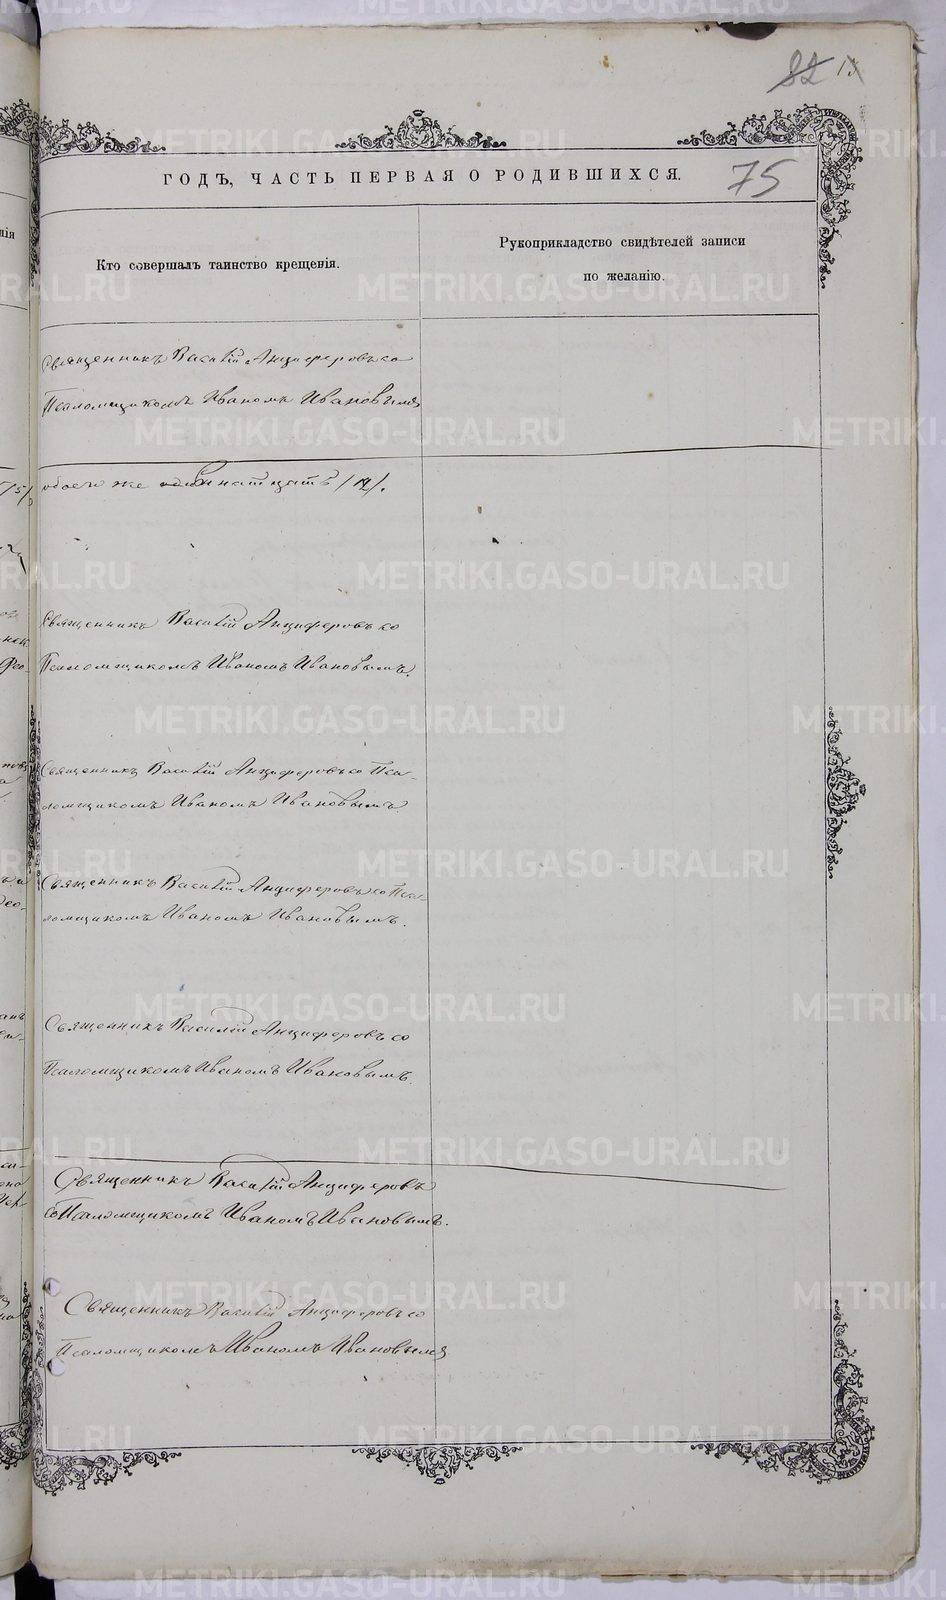 82
13
75
ГОДЪ, ЧАСТЬ ПЕРВАЯ О РОДИВШИХСЯ.
Кто совершалъ таинство крещенія.
Рукоприкладство свидѣтелей записи
по желанію.
Священникъ Василій Анциферовъ со
Псаломщикомъ Иваномъ Ивановымъ
обоего же
Священникъ Василій Анциферовъ со
Псаломщикомъ Иваномъ Ивановымъ.
Священникъ Василій Анциферовъ со Пса-
ломщикомъ Иваномъ Ивановымъ.
Священникъ Василій Анциферовъ со Пса-
ломщикомъ Иваномъ Ивановымъ.
Священникъ Василій Анциферовъ со
Псаломщикомъ Иваномъ Ивановымъ.
Священникъ Василій Анциферовъ
со Псаломщикомъ Иваномъ Ивановымъ.
Священникъ Василій Анциферовъ со
Псаломщикомъ Иваномъ Ивановымъ
METRIKI.GASO-URAL.RU